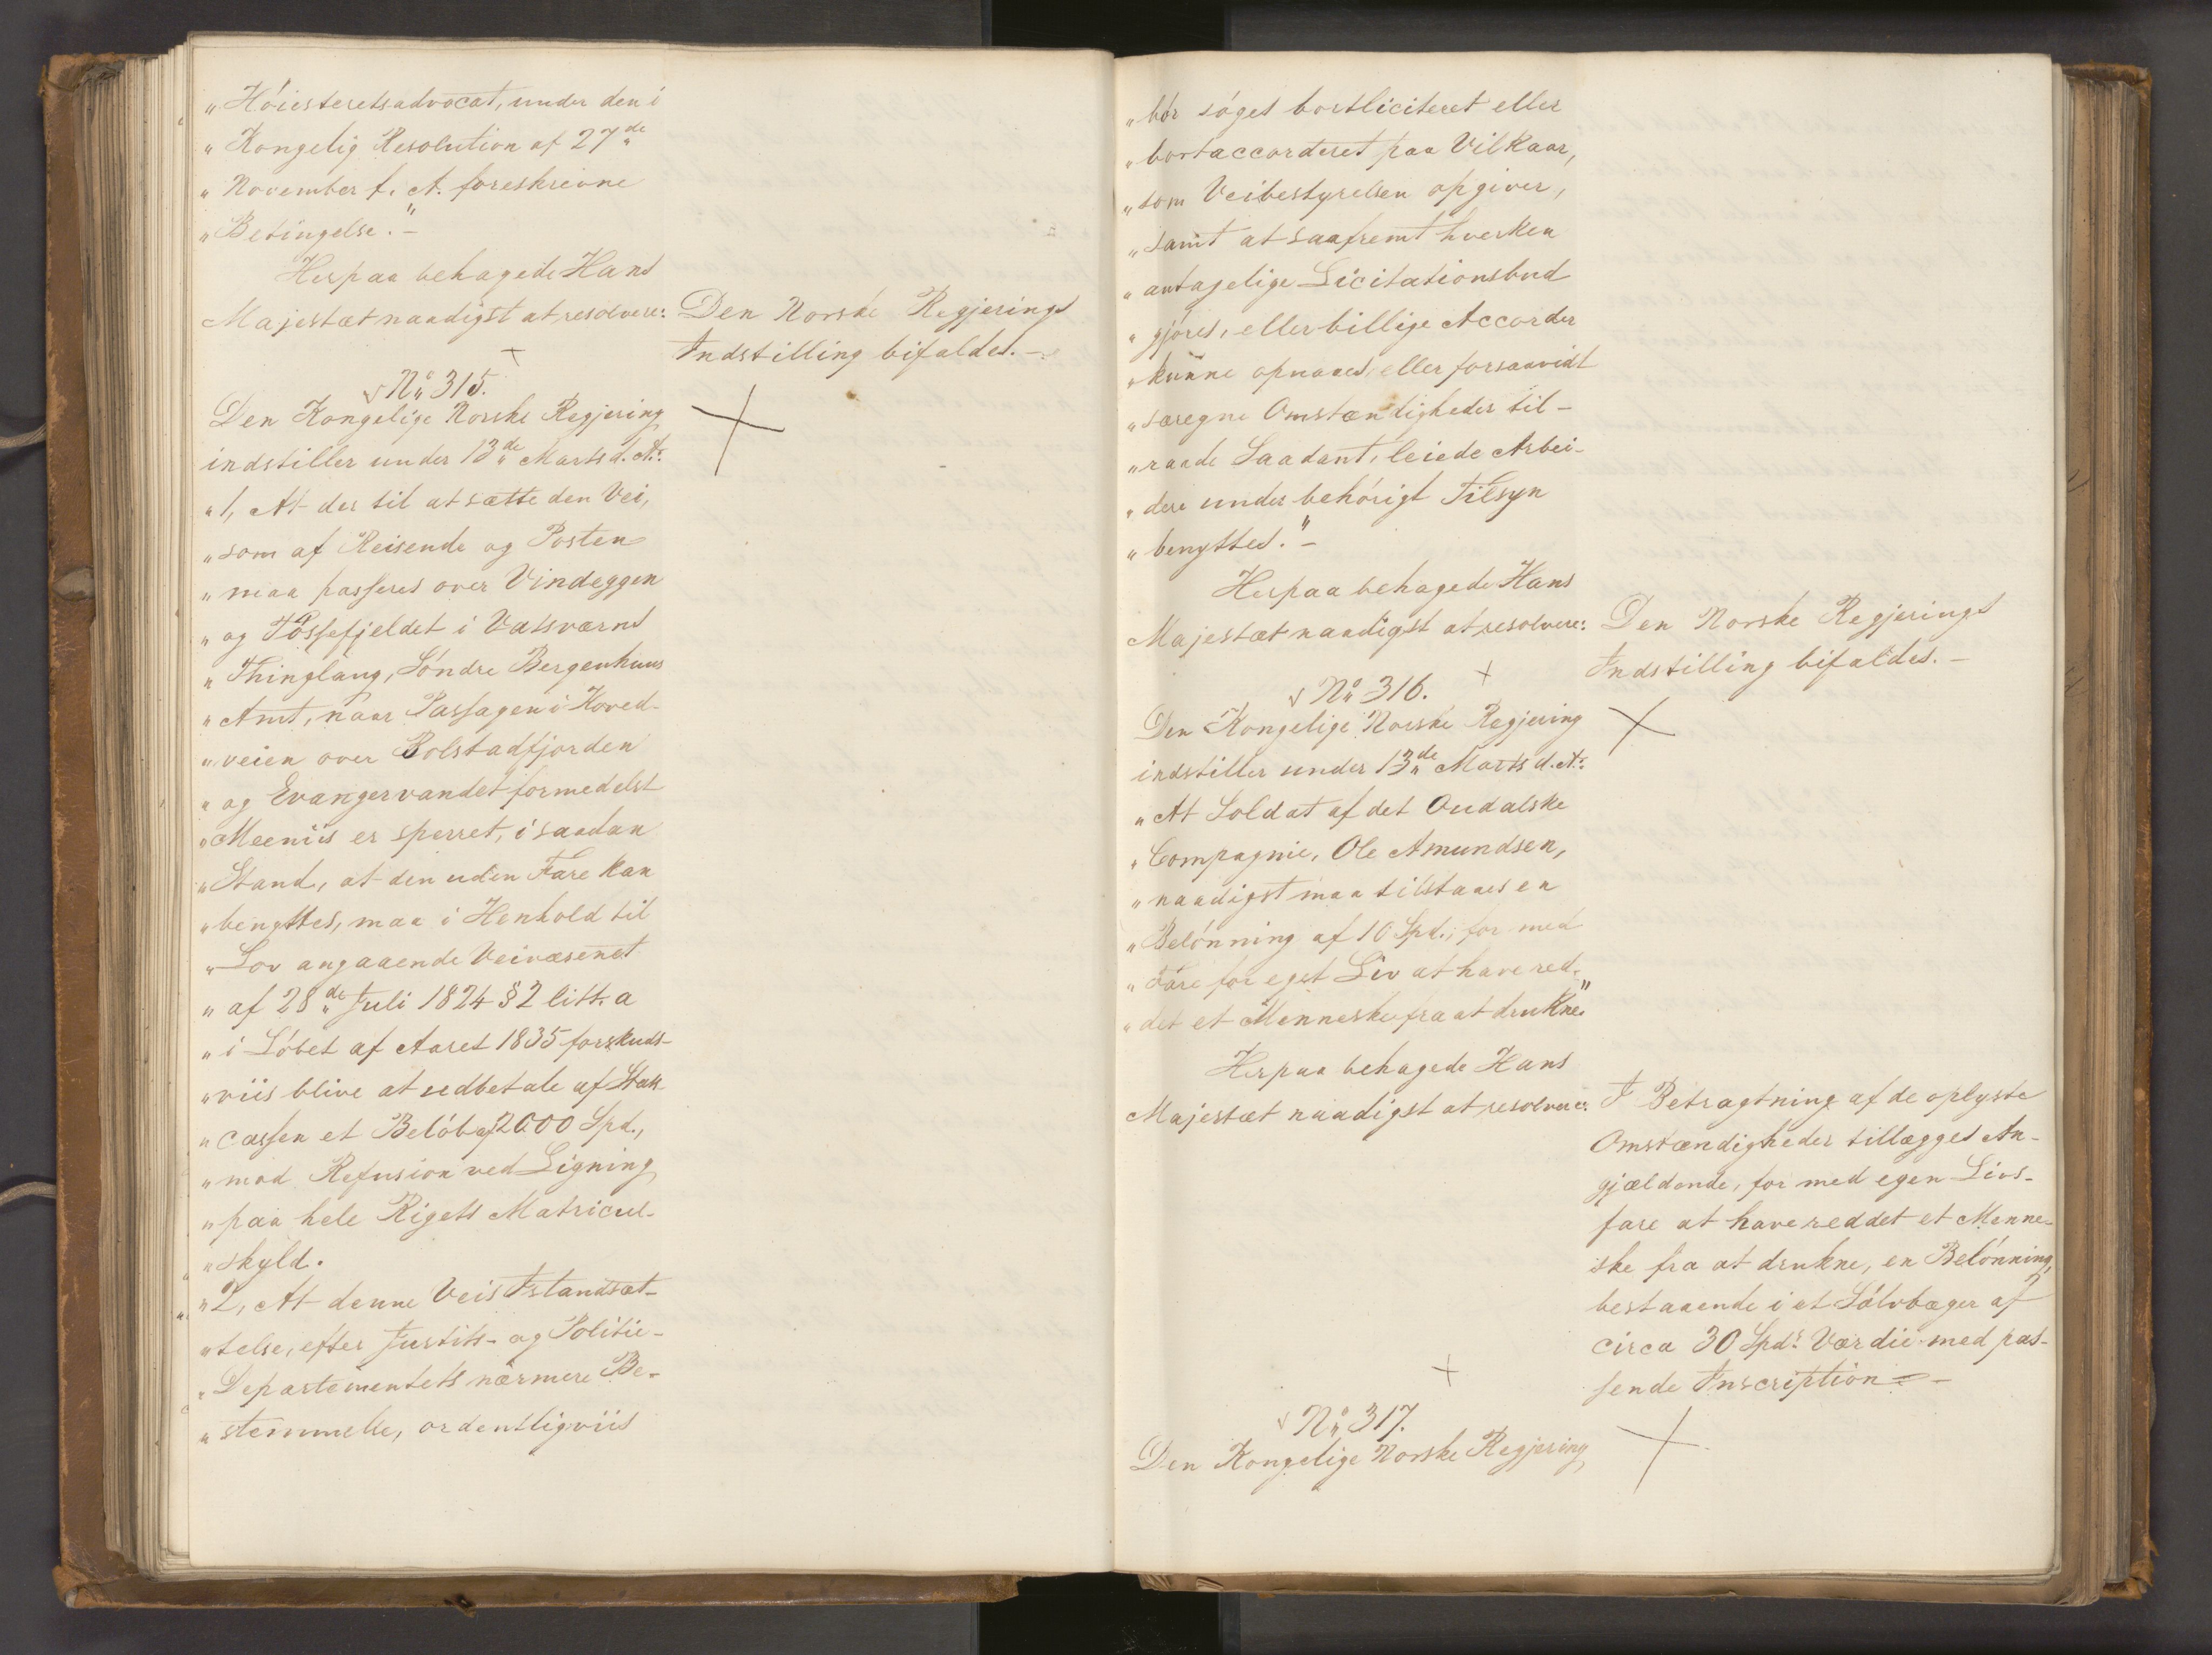 „Höiesteretsadvocat, under den i
„Kongelig Resolution af 27de
„November f. A. foreskrevne
„Betingelse."-
Herpaa behagede Hans
Majestæt naadigst at resolvere:
Den Norske Regjerings
Indstilling bifaldes.-
No 315.
Den Kongelige Norske Regjering
indstiller under 13de Marts d. A.:
„1, At der til at sætte den Vei,
„som af Reisende og Posten
„maa passeres over Vindeggen
„og Tössefjeldet i Vatsværns
„Thinglaug, Söndre Bergenhuus
„Amt, naar Passagen i Hoved-
„veien over Bolstadfjorden
„og Evangervandet formedelst
„Meeniis er sperret, i saadan
„Stand, at den uden Fare kan
„benyttes, maa i Henhold til
„Lov angaaende Veivæsenet
„af 28de Juli 1824 § 2 litt. a
„i Löbet af Aaret 1835 forskuds-
„viis blive at udbetale af Stats
„cassen et Belöb af 2000 Spd.,
„mod Refusion ved Ligning
„paa hele Rigets Matricul-
„skyld.
„2, At denne Veis Istandsæt-
„telse, efter Justits- og Politie-
„Departementets nærmere Be-
„stemmelse, ordentligviis
„bör söges bortliciteret eller
„bortaccorderet paa Vilkaar,
„som Veibestyrelsen opgiver,
„samt at saafremt hverken
„antagelige Licitationsbud
„gjöres, eller billige Accorder
„kunne opnaaes, eller forsaavidt
„særegne Omstændigheder til-
„raade Saadant, leiede Arbei-
„dere under behörigt Tilsyn
„benyttes."-
Herpaa behagede Hans
Majestæt naadigst at resolvere:
Den Norske Regjerings
Indstilling bifaldes.-
No 316.
Den Kongelige Norske Regjering
indstiller under 13de Marts d. A.:
„At Soldat af det Oudalske
„Compagnie, Ole Amundsen,
„naadigst maa tilstaaes en
„Belönning af 10 Spd., for med
„Fare for eget Liv at have red-
„det et Menneske fra at drukne."
Herpaa behagede Hans
Majestæt naadigst at resolvere:
I Betragtning af de oplyste
Omstændigheder tillægges An-
gjældende, for med egen Livs-
fare at have reddet et Menne-
ske fra at drukne, en Belönning,
bestaaende i et Sölvbæger af
circa 30 Spdr Værdie med pas-
sende Inscription.-
No 317.
Den Kongelige Norske Regjering